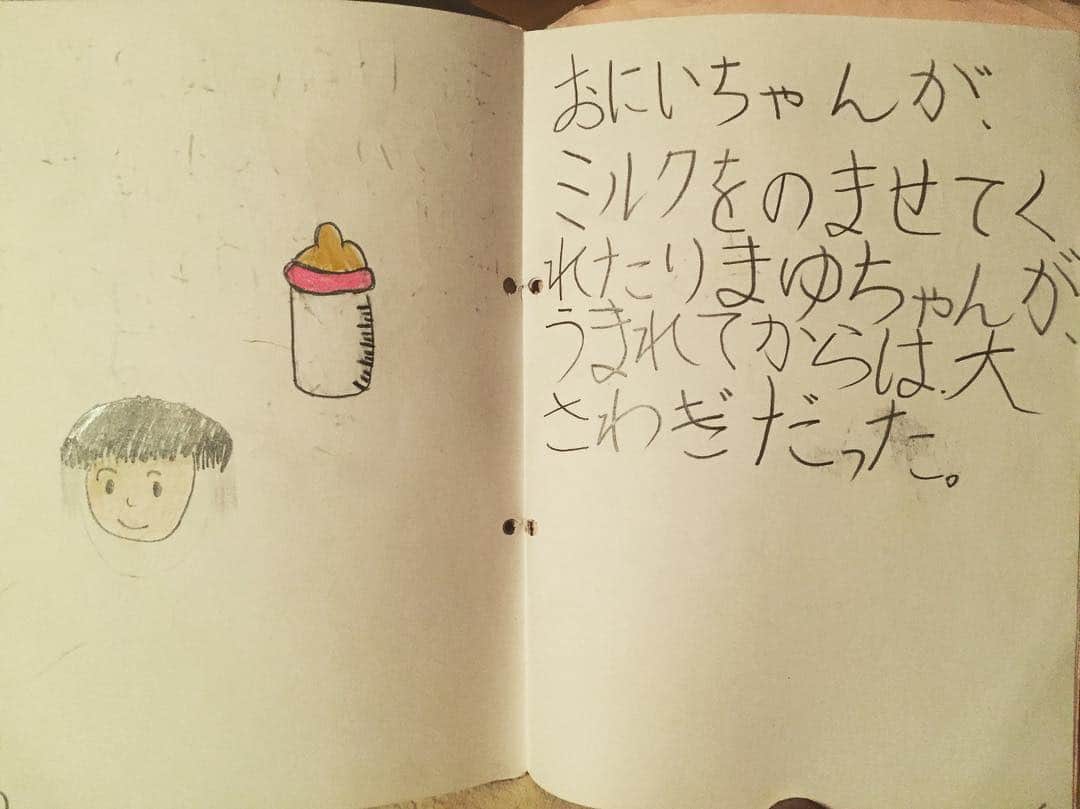 おにいちゃんが、
ミルクをのませてく
れたりまゆちゃんが、
うまれてからは、大
さわぎだった。